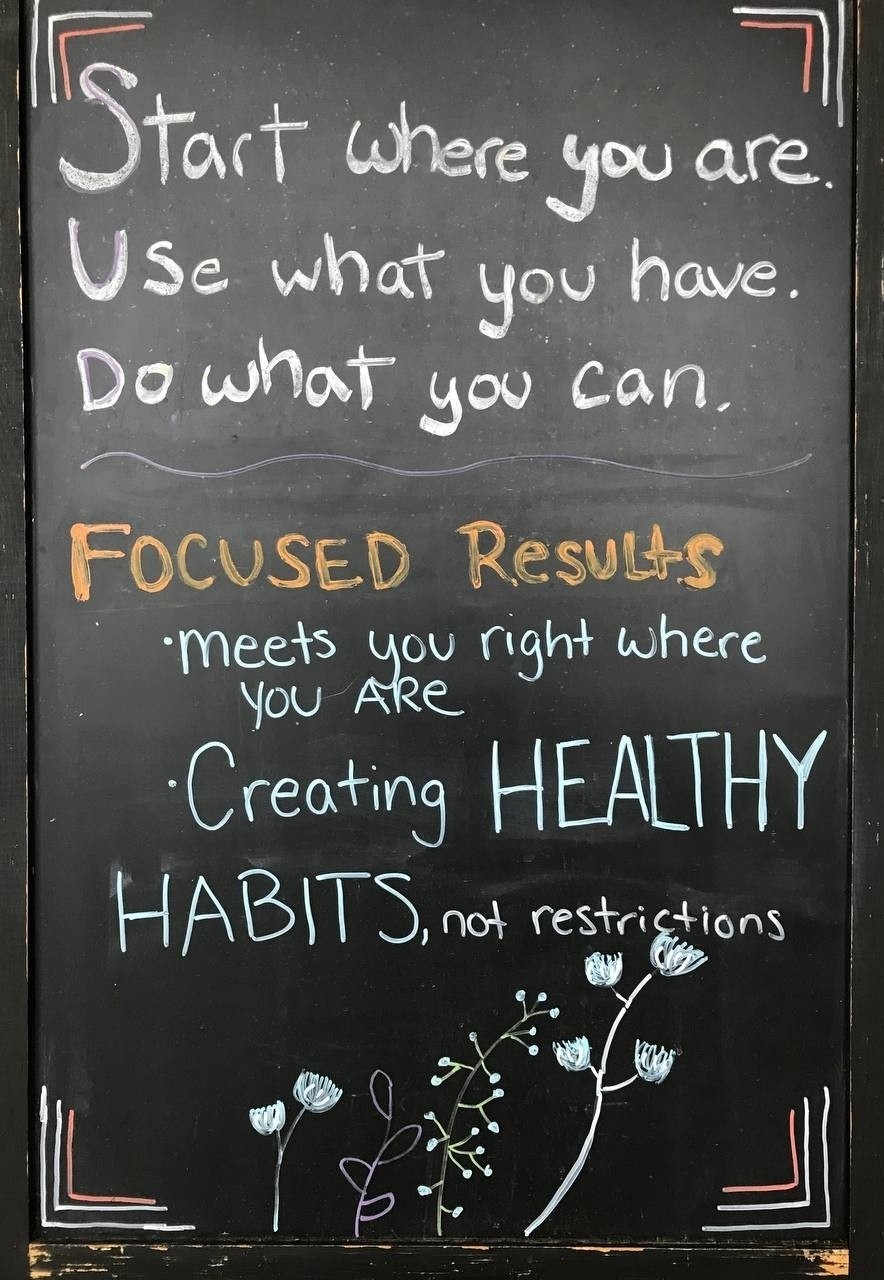 Start where you are.
Use what you have.
Do what you can.
FOCUSED Results
·meets you right where
YOU ARe
·Creating HEALTHY
HABITS, not restrictions